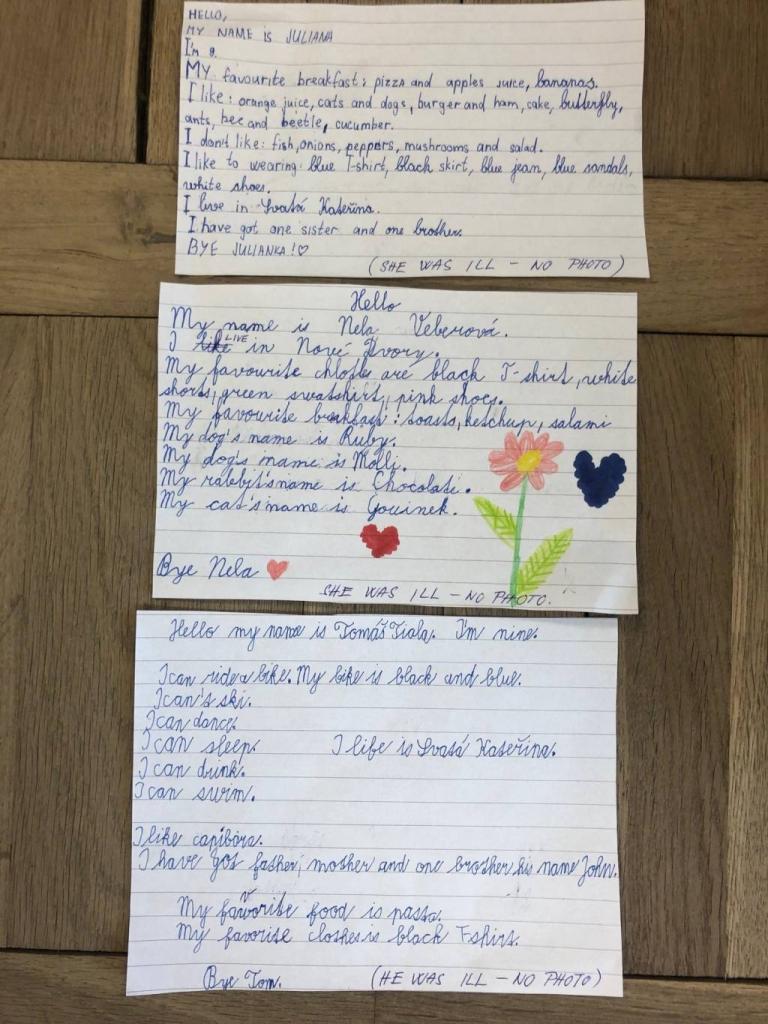 HELLO,
MY NAME IS JULIANA
I'm 9.
MY favourite breakfast: pizza and apples juice, bananas.
I like: orange juice, cats and dogs, burger and ham, cake, butterfly,
ants, bee and beetle, cucumber.
I don't like: fish, onions, peppers, mushrooms and salad.
I like to wearing: blue T-shirt, black skirt, blue jean, blue sandals,
white shoes.
I live in Svatá Kateřina.
I have got one sister and one brother.
BYE JULIANKA!♡
(SHE WAS ILL - NO PHOTO)
Hello
My name is Nela Veberová.
I LIVE in Nové Dvory.
My favourite chlothes are black T-shirt, white
shorts, green swatshirt, pink shoes.
My favourite breakfast: toasts, ketchup, salami
My dog's name is Ruby.
My dog's name is Molli.
My rabbit's name is Chocolate.
My cat's name is
Bye Nela
SHE WAS ILL - NO PHOTO.
Hello my name is Tomáš Fiala. I'm nine.
I can ride a bike. My bike is black and blue.
I can's ski.
I can dance.
I can sleep. I life is Svatá Kateřina.
I can drink.
I can swim.
I like capibara.
I have got father, mother and one brother his name John.
My favorite food is pasta.
My favorite clothes is black T-shirt.
Bye Tom. (HE WAS ILL - NO PHOTO)